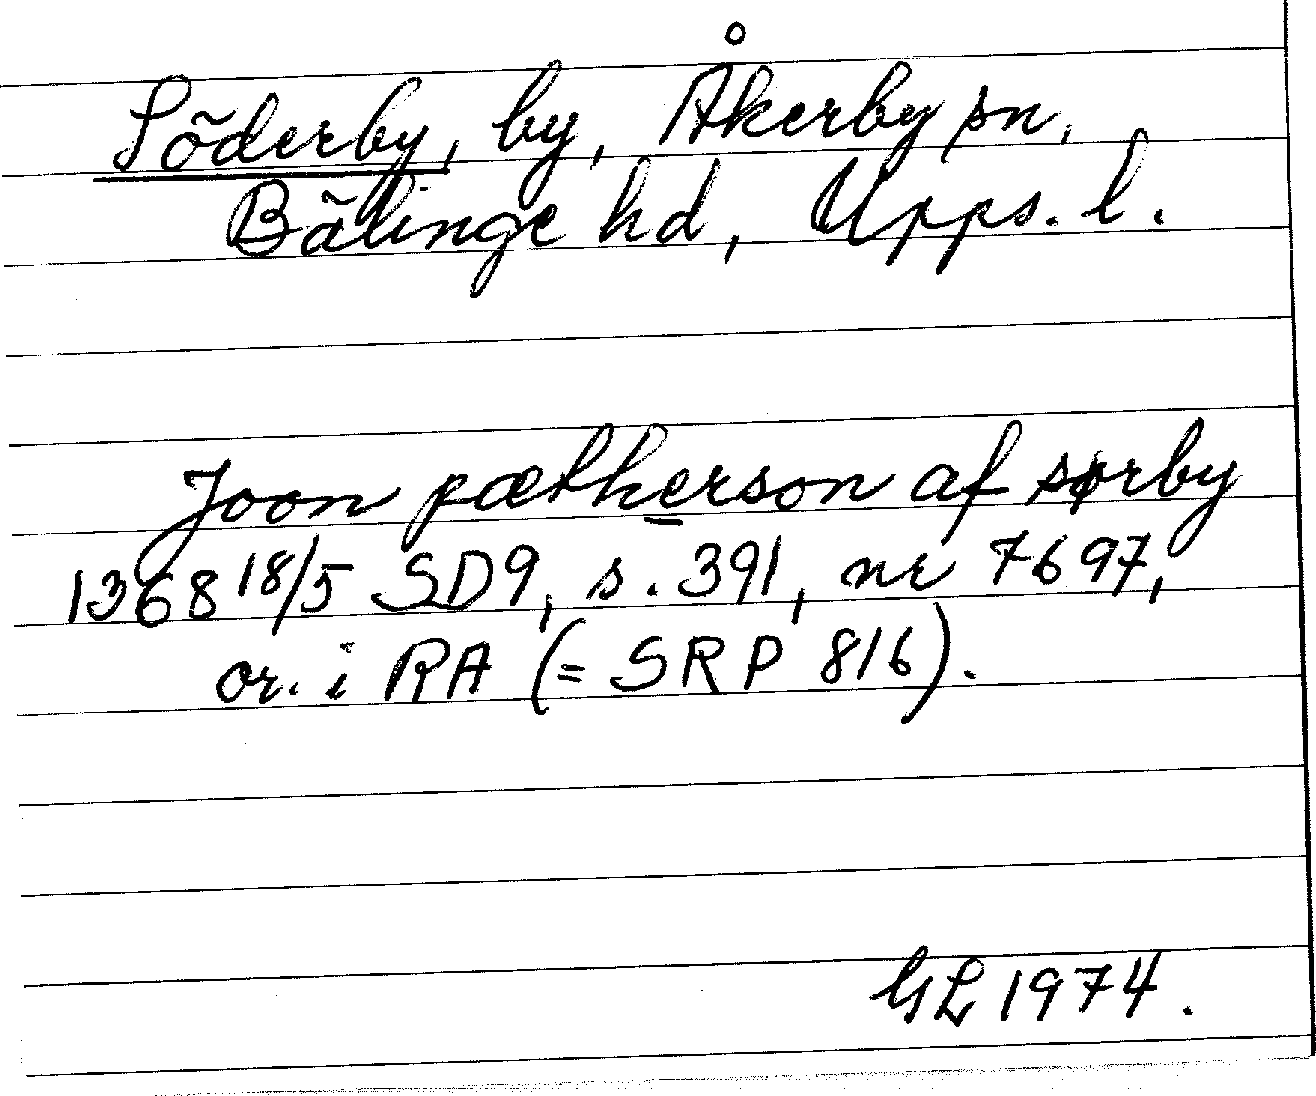 Söderby, by, Åkerby sn,
Bälinge hd, Upps. l.
Joon pætherson af sørby
1368 18/5 SD9, s. 391, nr 7697,
or. i RA (= SRP 816).
GL 1974.